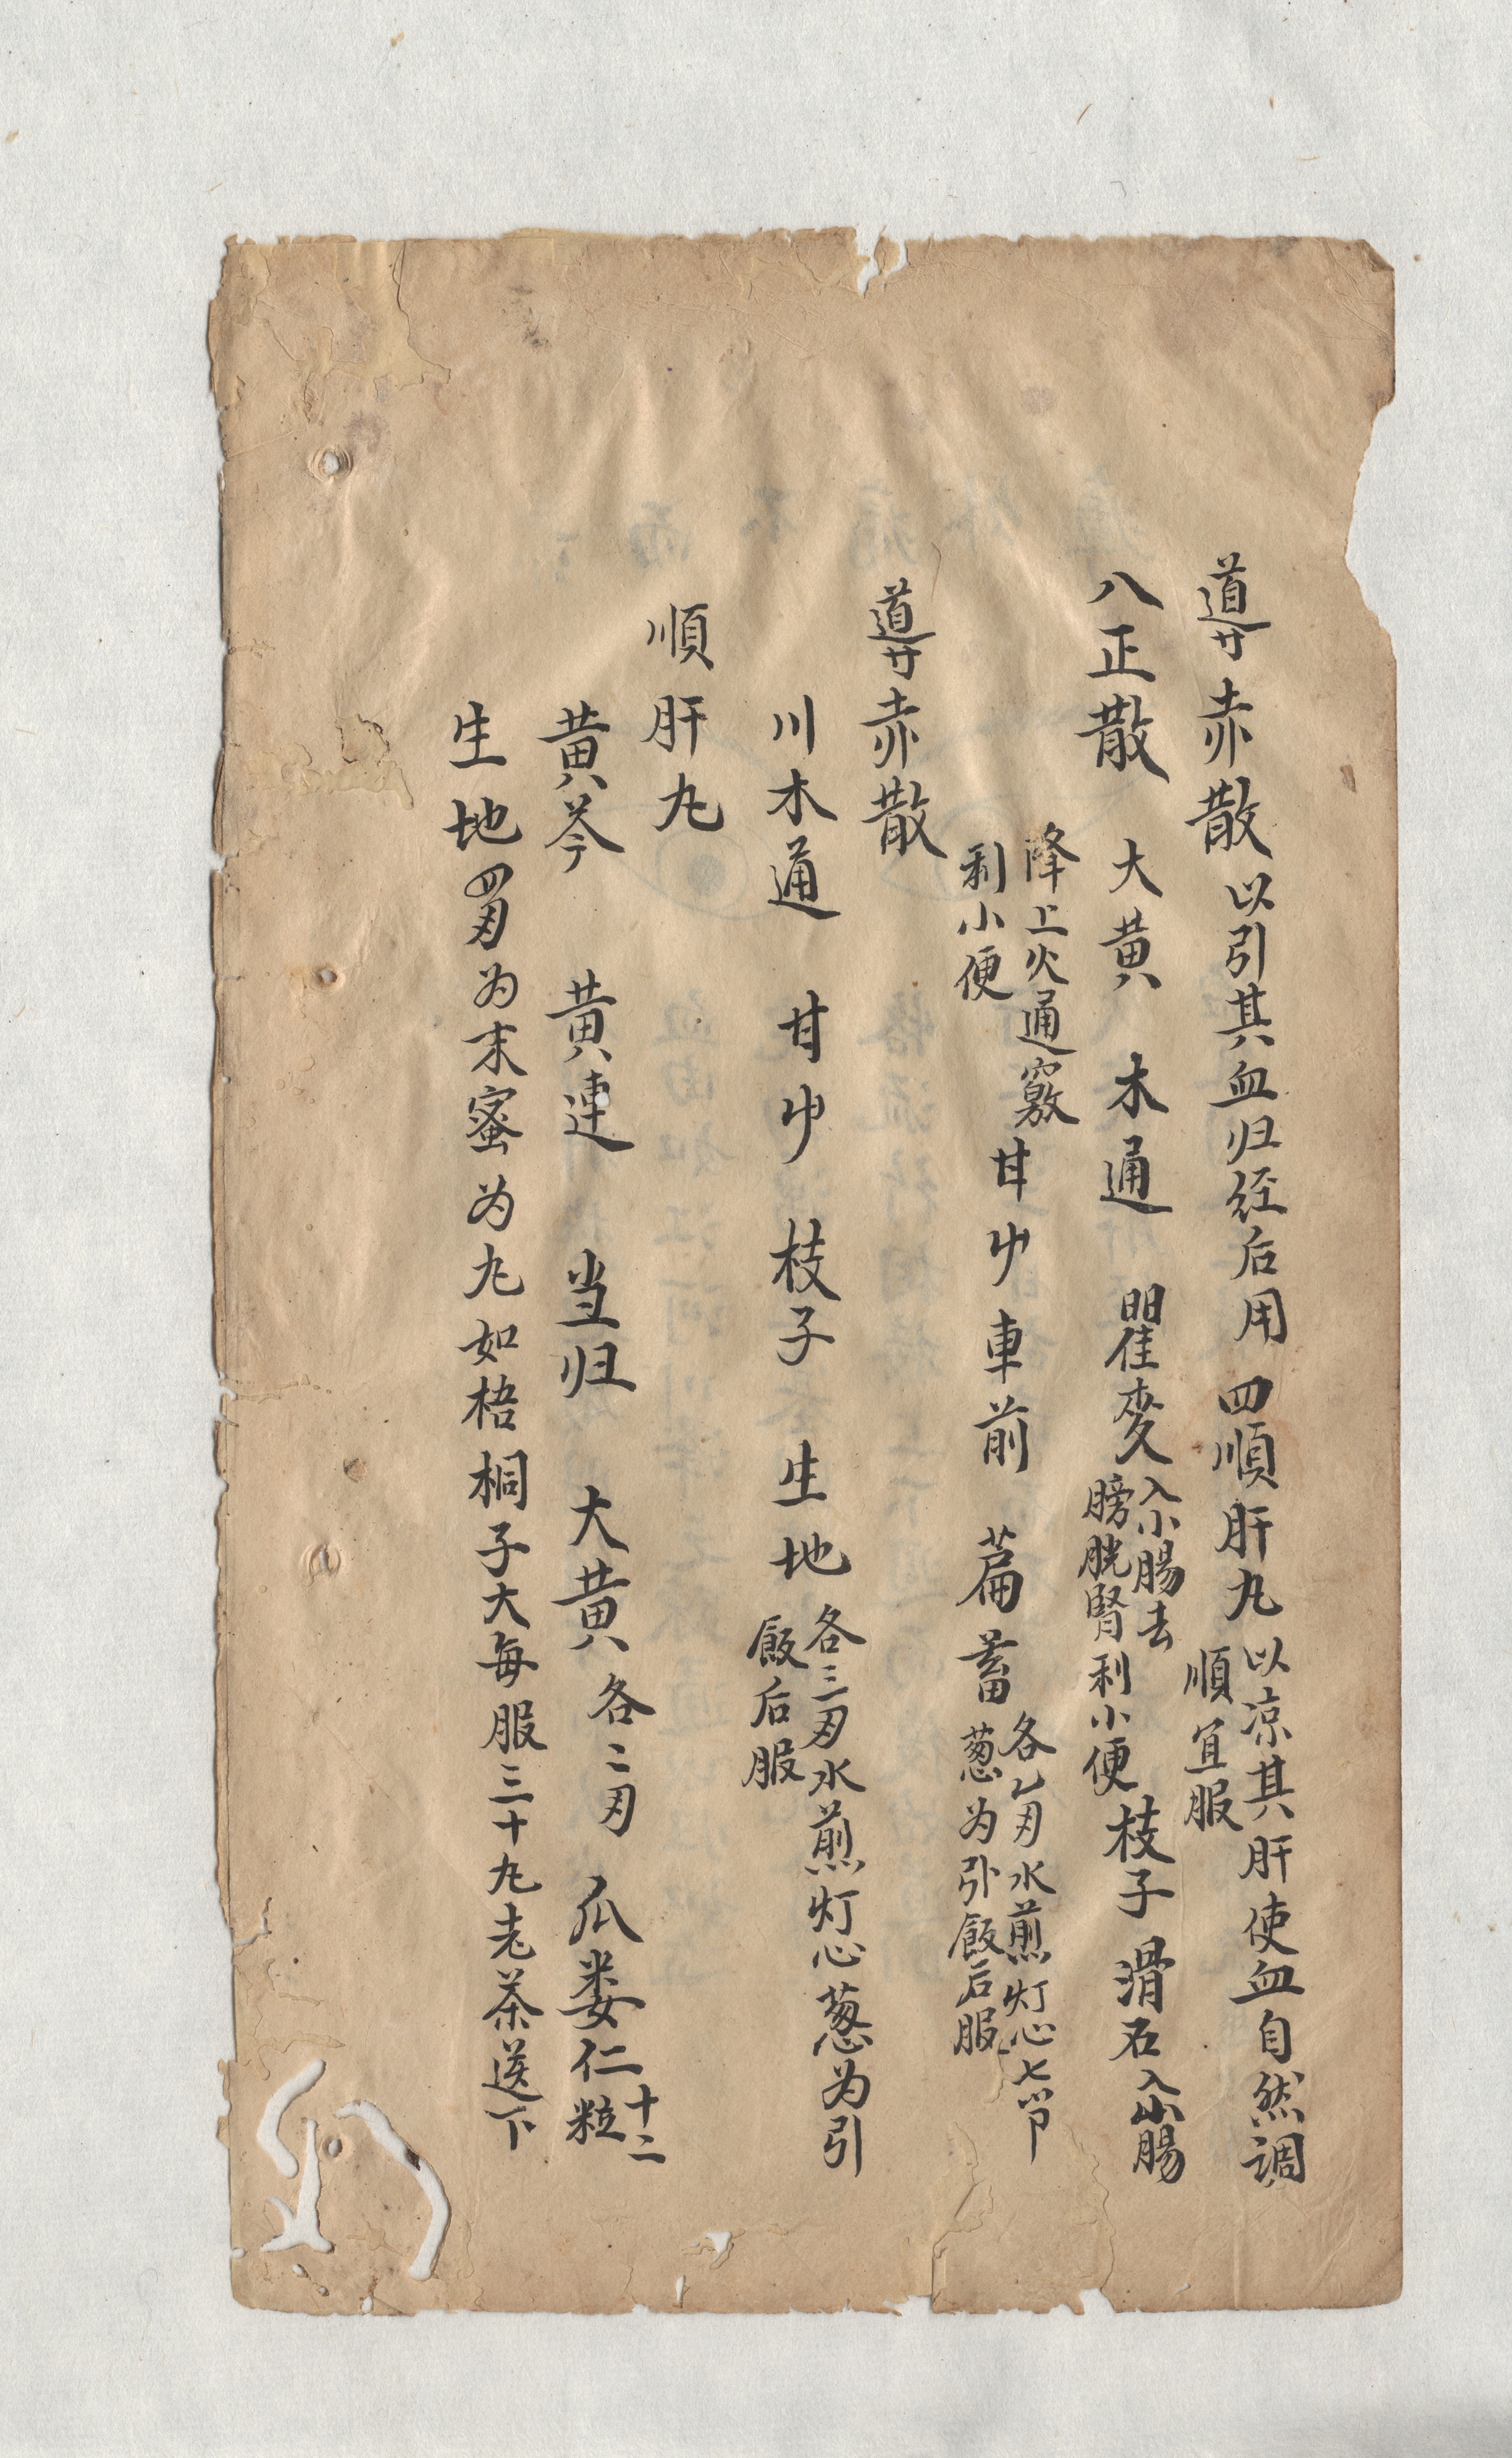 導赤散以引其血归经后用四順肝丸以凉其肝使血自然調
順宜服
八正散 大黄 木通 瞿麦入小腸去
膀胱腎利小便枝子滑石入小腸
降上火通竅
利小便
甘屮車前 萹蓄各乙刄水煎灯心七卩
葱为引飯后服
導赤散
川木通 甘屮 枝子 生地各三刄水煎灯心葱为引
飯后服
順肝丸
黄芩 黄連 当归 大黄各二刄 瓜娄仁十二
粒
生地四刄为末蜜为丸如梧桐子大每服三十丸老茶送下